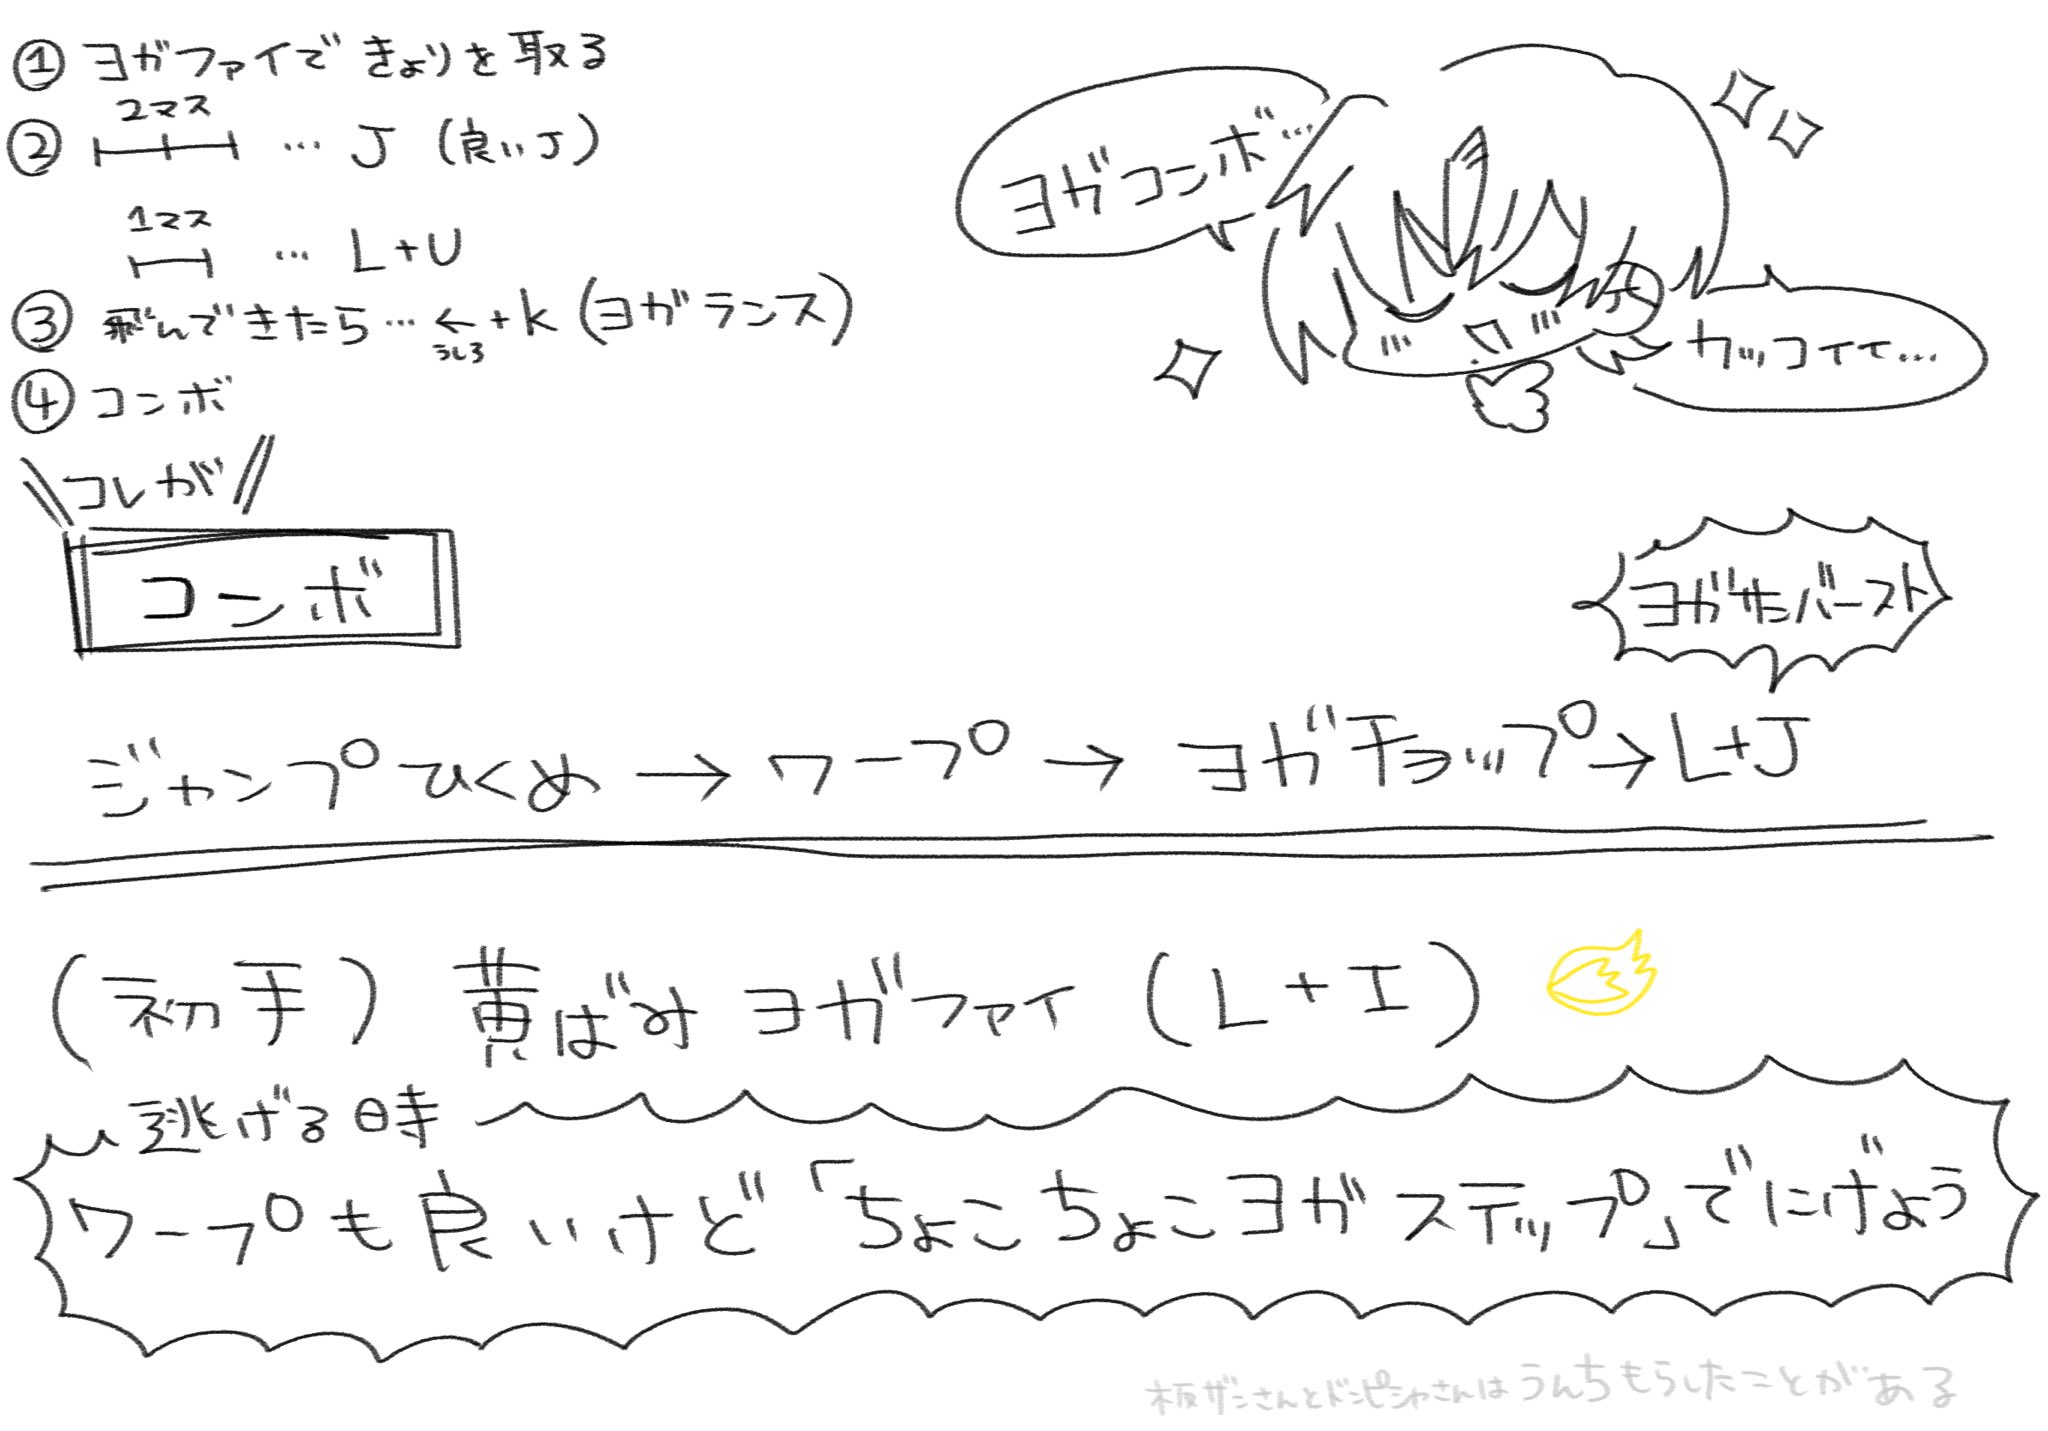 ① ヨガファイできょりを取る
2マス
② … J (良いJ)
1マス
… L+U
③ 飛んできたら…←+K (ヨガランス)
うしろ
④ コンボ
ヨガコンボ…
カッコイイ…
コレが
コンボ
ヨガサンバースト
ジャンプひくめ→ワープ→ヨガチョップ→L+J
(初手)黄ばみヨガファイ (L+I)
逃げる時
ワープも良いけど「ちょこちょこヨガステップ」でにげよう
板ザンさんとドンピシャさんはうんちもらしたことがある